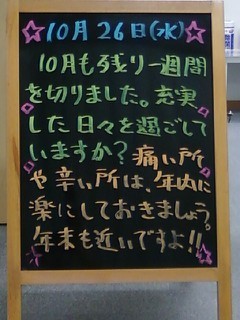 ☆10月26日(水)☆
10月も残り一週間
を切りました。充実
した日々を過ごして
いますか？痛い所
や辛い所は、年内に
楽にしておきましょう。
年末も近いですよ!!